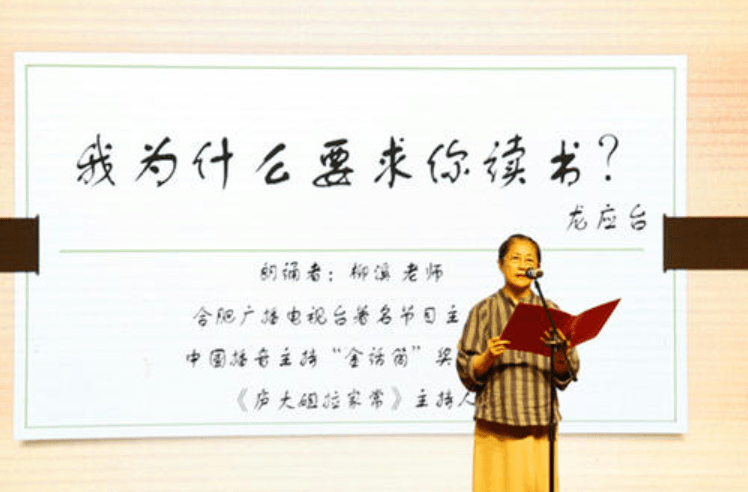 我为什么要求你读书?
龙应台
朗诵者:柳溪 老师
合肥广播电视台著名节目主
中国播音主持“金话筒”奖
《庐大姐拉家常》主持人